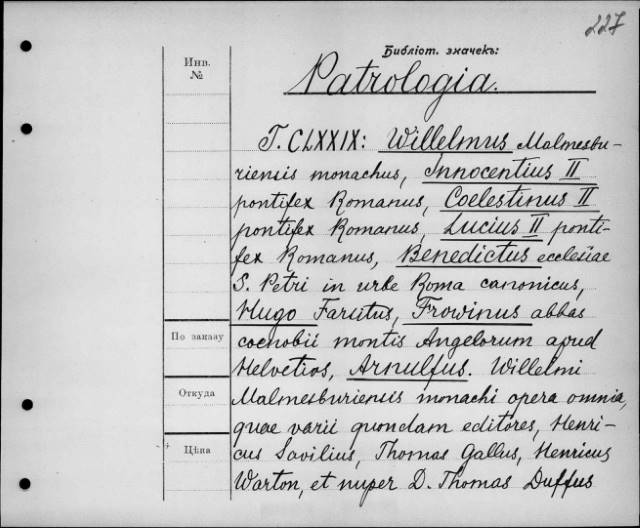 227
Библіот. значекъ:
Инв.
№
Patrologia.
T. CLXXIX: Willelmus Malmesbu-
riensis monachus, Innocentius II
pontifex Romanus, Coelestinus II
pontifex Romanus, Lucius II ponti-
fex Romanus, Benedictus ecclesiae
S. Petri in urbe Roma canonicus,
Hugo Farsitus, Frowinus abbas
По заказу
coenobii montis Angelorum apud
Helvetios, Arnulfus. Willelmi
Откуда
Malmesburiensis monachi opera omnia,
quae varii quondam editores, Henri-
Цѣна
cus Savilius, Thomas Gallus, Henricus
Warton, et nuper D. Thomas Duffus